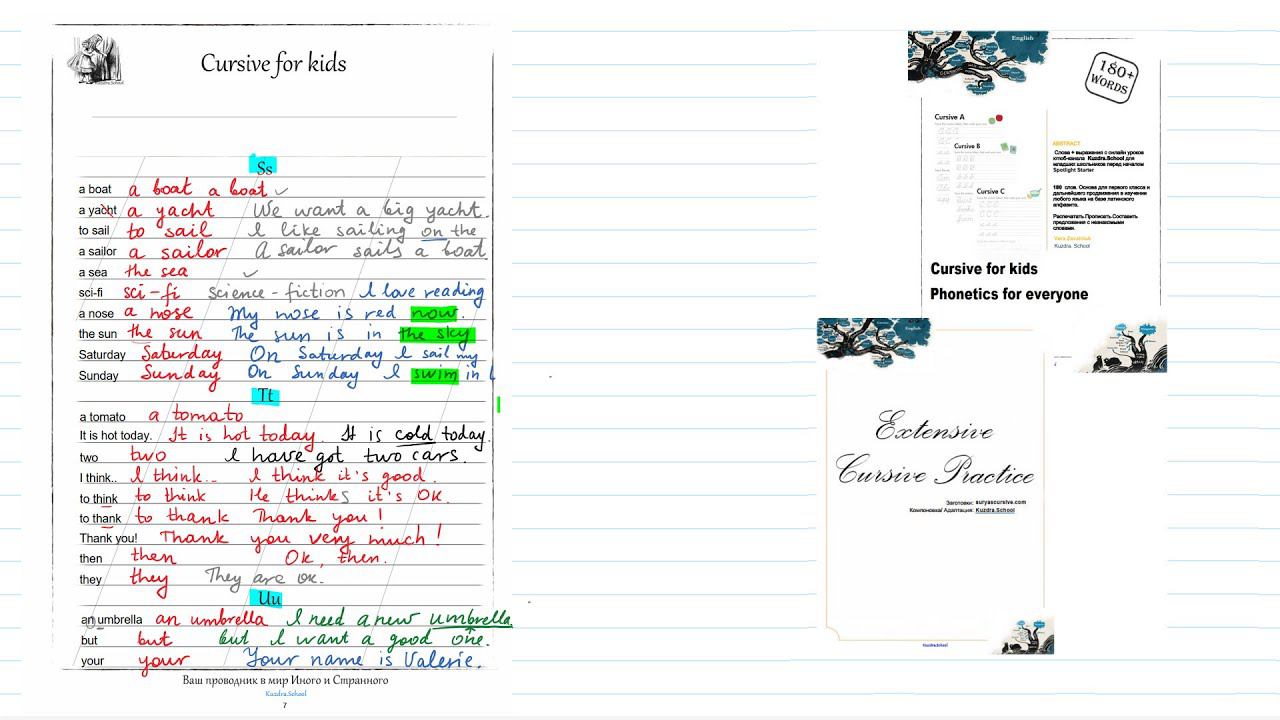 Kuzdra.School
Cursive for kids
Ss
a boat a boat a boat
a yacht a yacht We want a big yacht.
to sail to sail I like sailing on the
a sailor a sailor A sailor sails a boat.
a sea the sea
sci-fi sci-fi science-fiction I love reading
a nose a nose My nose is red now.
the sun the sun The sun is in the sky
Saturday Saturday On Saturday I sail my
Sunday Sunday On Sunday I swim in
Tt
a tomato a tomato
It is hot today. It is hot today. It is cold today.
two two I have got two cars.
I think.. I think.. I think it's good.
to think to think He thinks it's OK.
to thank to thank Thank you!
Thank you! Thank you very much!
then then Ok, then.
they they They are ok.
Uu
an umbrella an umbrella I need a new umbrella
but but but I want a good one.
your your Your name is Valerie.
Ваш проводник в мир Иного и Странного
Kuzdra.School
7
English
180+
WORDS
Cursive A
Cursive B
Cursive C
ABSTRACT
Слова + выражения с онлайн уроков
ютюб-канала Kuzdra.School для
младших школьников перед началом
Spotlight Starter
180 слов. Основа для первого класса и
дальнейшего продвижения в изучении
любого языка на базе латинского
алфавита.
Распечатать.Прописать.Составить
предложения с незнакомыми
словами.
Kuzdra. School
Cursive for kids
Phonetics for everyone
English
Extensive
Cursive Practice
Заготовки: suryascursive.com
Компоновка/ Адаптация: Kuzdra.School
Kuzdra.School